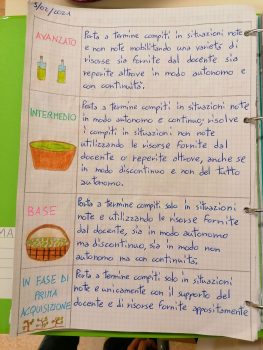 5/02/2021
AVANZATO
Porta a termine compiti in situazioni note
e non note mobilitando una varietà di
risorse sia fornite dal docente sia
reperite altrove in modo autonomo e
con continuità.
INTERMEDIO
Porta a termine compiti in situazioni note
in modo autonomo e continuo, risolve
i compiti in situazioni non note
utilizzando le risorse fornite dal
docente o reperite altrove, anche se
in modo discontinuo e non del tutto
autonomo.
BASE
Porta a termine compiti solo in situazioni
note e utilizzando le risorse fornite
dal docente, sia in modo autonomo
ma discontinuo, sia in modo non
autonomo ma con continuità.
IN FASE DI
PRIMA
ACQUISIZIONE
Porta a termine compiti solo in situazioni
note e unicamente con il supporto del
docente e di risorse fornite appositamente